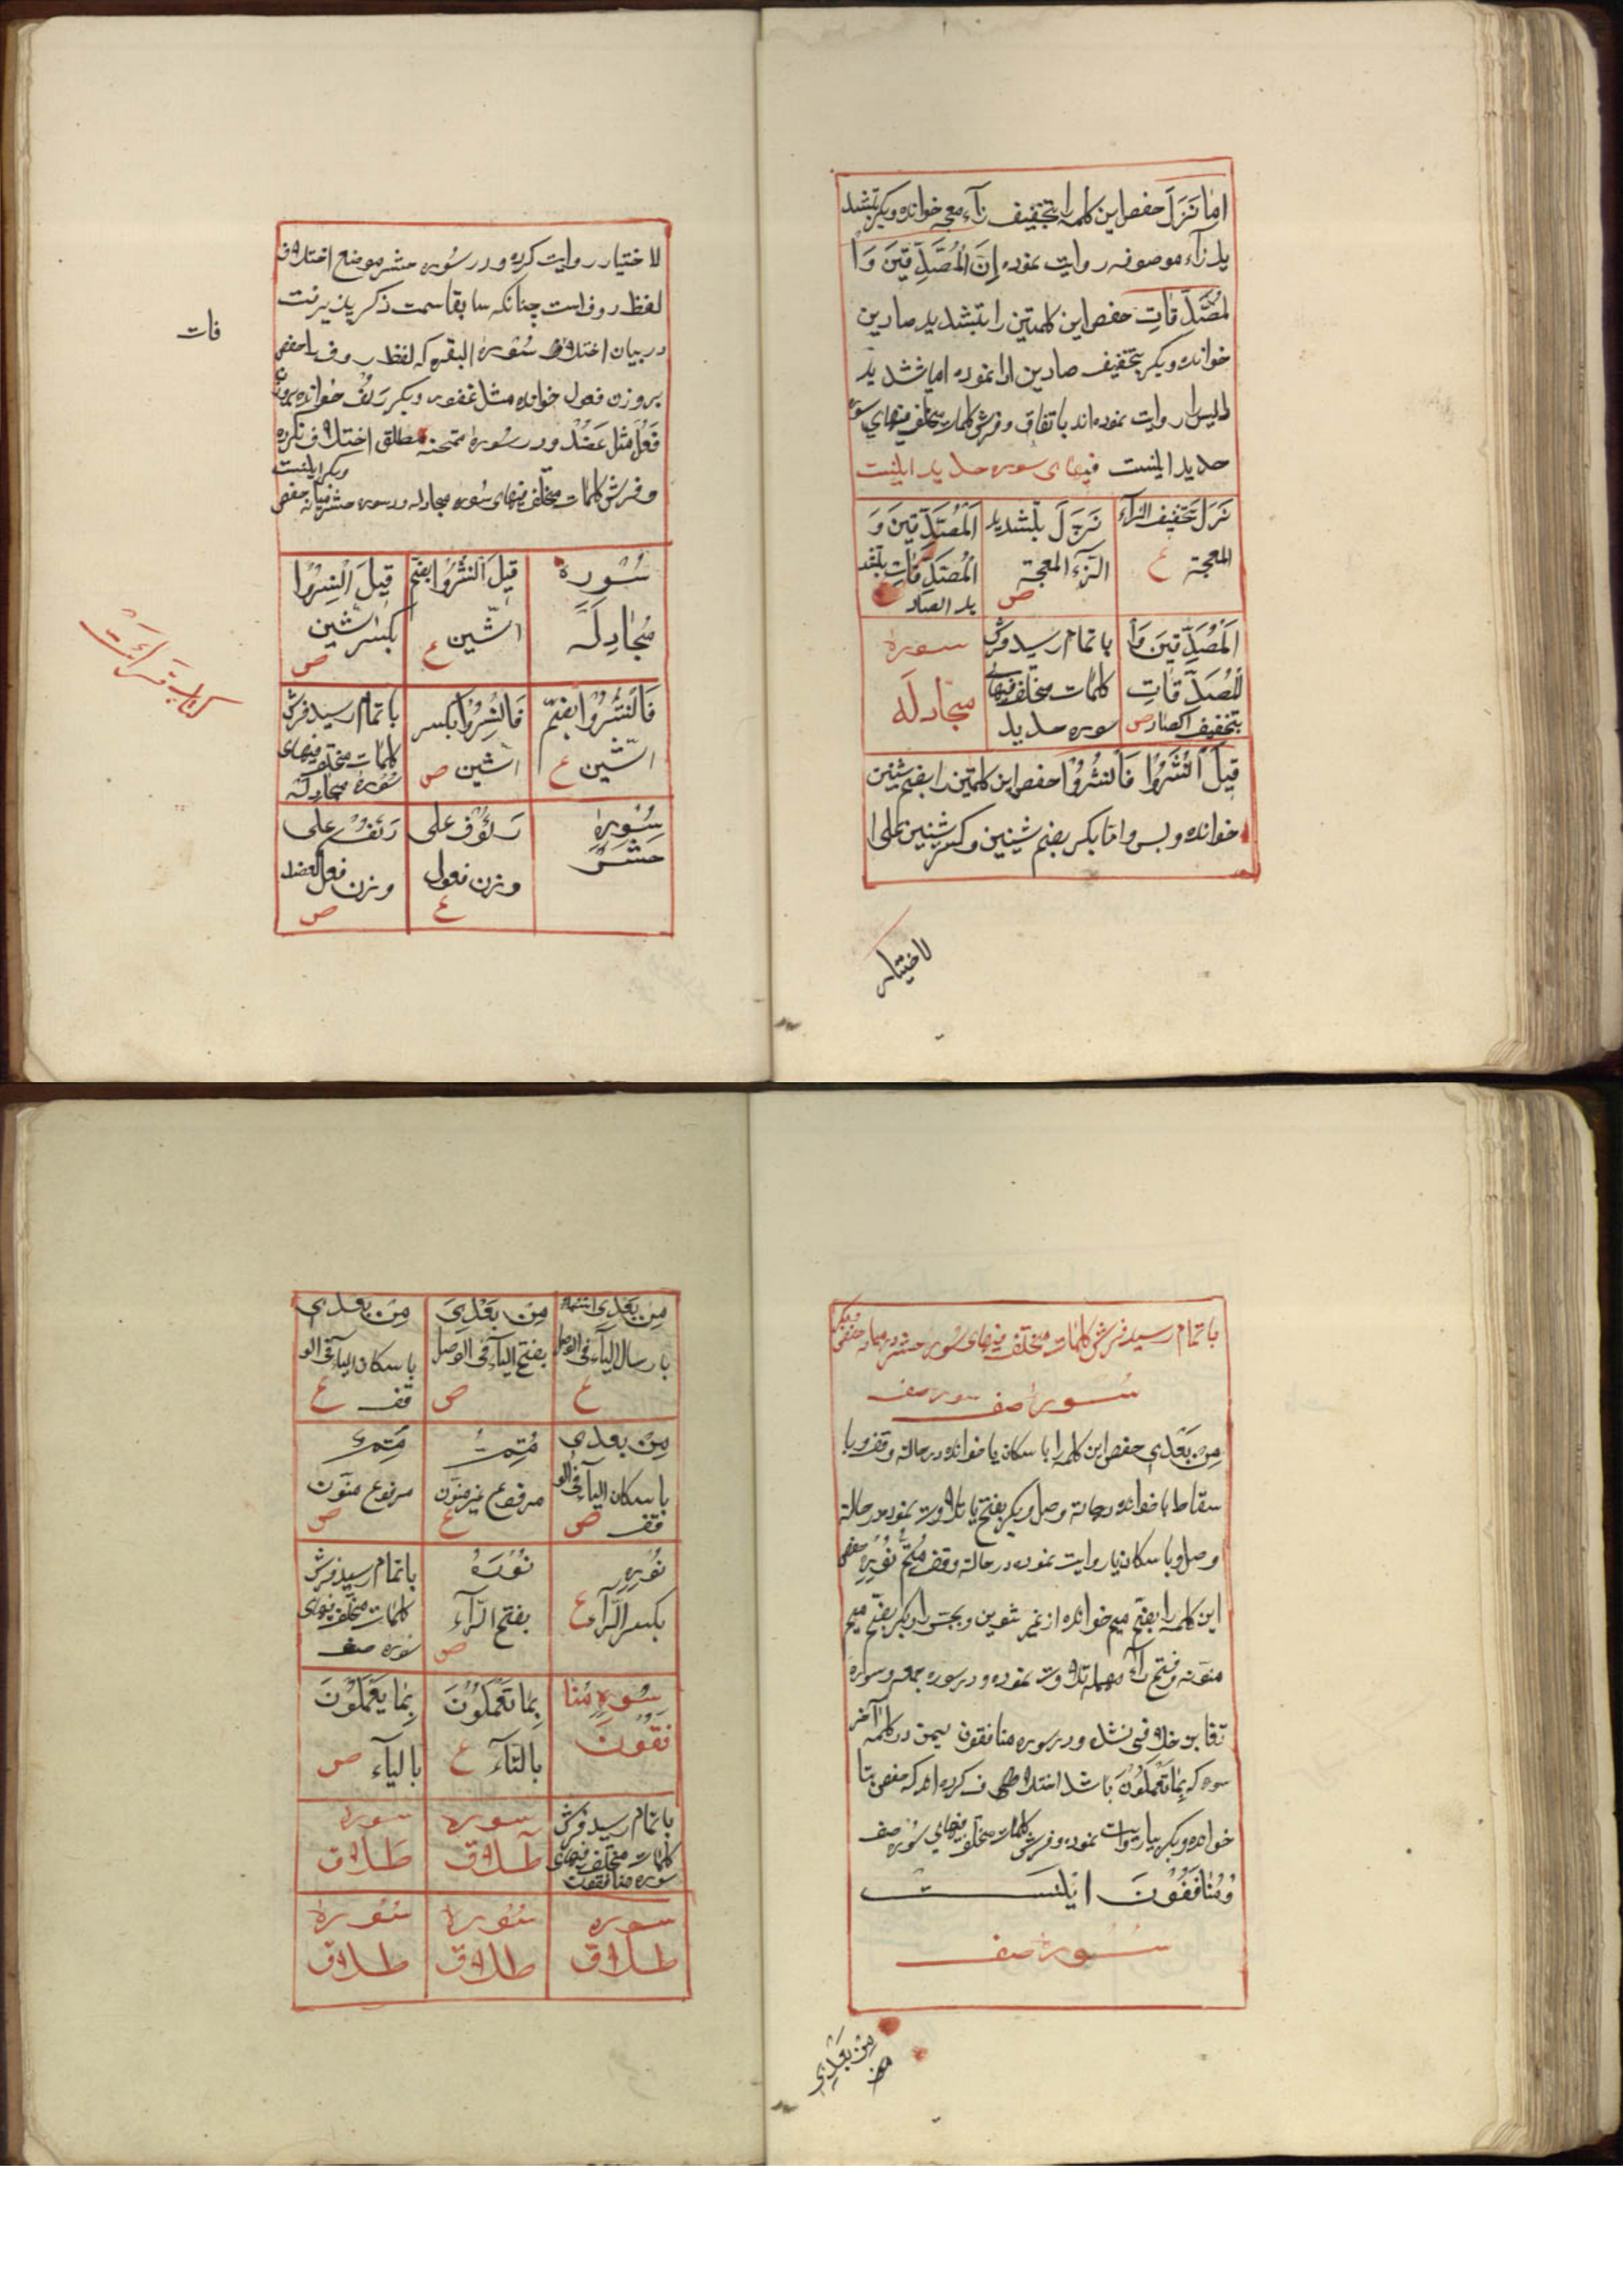 اما نَزَلَ حفص این کلمه را بتخفیف زآء معجمه خوانده و بکر بتشد
ید زآء موصوفه روایت نموده اِنَّ الْمُصَّدِّقِیَن وَا
لْمُصَّدِّقاتِ حفص این کلمتین را بتشدید صادین
خوانده و بکر بتخفیف صادین ادا نموده اما تشدید
دالین را روایت نموده‌اند باتفاق و فرش کلمات مختلف فیهای سوره
حدید اینست فیهای سوره حدید اینست
نَزَلَ بتخفیف الزآء
المعجمة ع
نَزَّلَ بتشدید
الزّآء المعجمة
ص
اَلْمُصَّدِّقینَ وَ
الْمُصَّدِّقاتِ بتشد
ید الصاد
اَلْمُصَدِّقینَ وَا
لْمُصَدِّقاتِ
بتخفیف الصاد ص
باتمام رسید فرش
کلمات مختلف فیهای
سوره حدید
سوره
مجادلَه
قیلَ انْشُزُوا فَانْشُزُوا حفص این کلمتین را بضم شینین
خوانده و بس و اما بکر بضم شینین و کسر شینین علی ا
لاختیار
لاختیار روایت کرده و در سُوره حشر موضع اختلاف
لفظ روف است چنانکه سابقا سمت ذکر پذیرفت
در بیان اختلاف سُورهٔ البقره که لفظ روف را حفص
بروزن فعول خوانده مثل غفور و بکر رَئُف خوانده بروزن
فَعُل مثل عَضُد و در سُورهٔ ممتحنه مطلق اختلاف نکرده
و بکر اینست
و فرش کلمات مختلف فیهای سُوره مجادله و سوره حشر میانه حفص
فات
کتاب قرائت
سُوره
مُجادِلَه
قیلَ انْشُزُوا بضم
الشّین ع
قیلَ انْشِزُوا
بکسر الشّین
ص
فَانْشُزُوا بضمّ
الشّین ع
فَانْشِزُوا بکسر
الشین ص
باتمام رسید فرش
کلمات مختلف فیهای
سُورهٔ مجادله
سُورهٔ
حَشر
رَئُوف علی
وزن فعول
ع
رَئُف علی
وزن فعل العضد
ص
باتمام رسید فرش کلمات مختلف فیهای سُوره حشر
سُورهٔ صف سوره صف
مِن بَعْدی حفص این کلمه را باسکان یا خوانده در حالة وقف و با
سقاط یا خوانده در حالة وصل و بکر بفتح یا تلاوت نموده در حالة
وصل و باسکان یا روایت نموده در حالة وقف مُتِمُّ نُورِهِ حفص
این کلمه را بضم میم خوانده از غیر تنوین و بجر را و بکر بضم میم
منونه و فتح رآء مهمله تلاوت نموده و در سوره جمعه و سوره
تغابن خلافی نشده و در سوره منافقون یمن در کلمه آخر
سوره که بِمٰا تَعْمَلُونَ باشد اختلاف کرده‌اند که حفص بتا
خوانده و بکر بیا روایت نموده و فرش کلمات مختلف فیهای سُوره صف
وَمُنافِقُونَ اینست
سُورهٔ صف
مِن بَعْدی
مِن بَعْدی
باسال الیآء فی الوصل
ع
مِن بَعْدِیَ
بفتح الیآء فی الوصل
ص
مِن بعدی
باسکان الیآء فی الو
قف ع
مِن بعدی
باسکان الیآء فی الو
قف ص
مُتِمُّ
مرفوع غیر منوّن
ع
مُتِمٌّ
مرفوع منوّن
ص
نُورِهِ
بکسر الرّآء ع
نُورَهُ
بفتح الرّآء
ص
باتمام رسید فرش
کلمات مختلف فیهای
سُوره صف
سُورهٔ مُنا
فقُونَ
بِمٰا تَعْمَلُونَ
بالتآء ع
بِمٰا یَعْمَلُونَ
بالیآء ص
باتمام رسید فرش
کلمات مختلف فیهای
سوره منافقون
سوره
طلاق
سوره
طلاق
سوره
طلاق
سُورهٔ
طلاق
سُورهٔ
طلاق